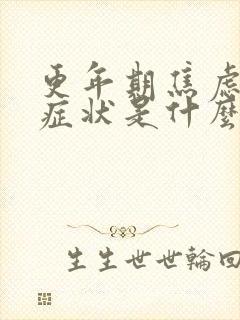 更年期焦虑
症状是什麼
生生世世輪回